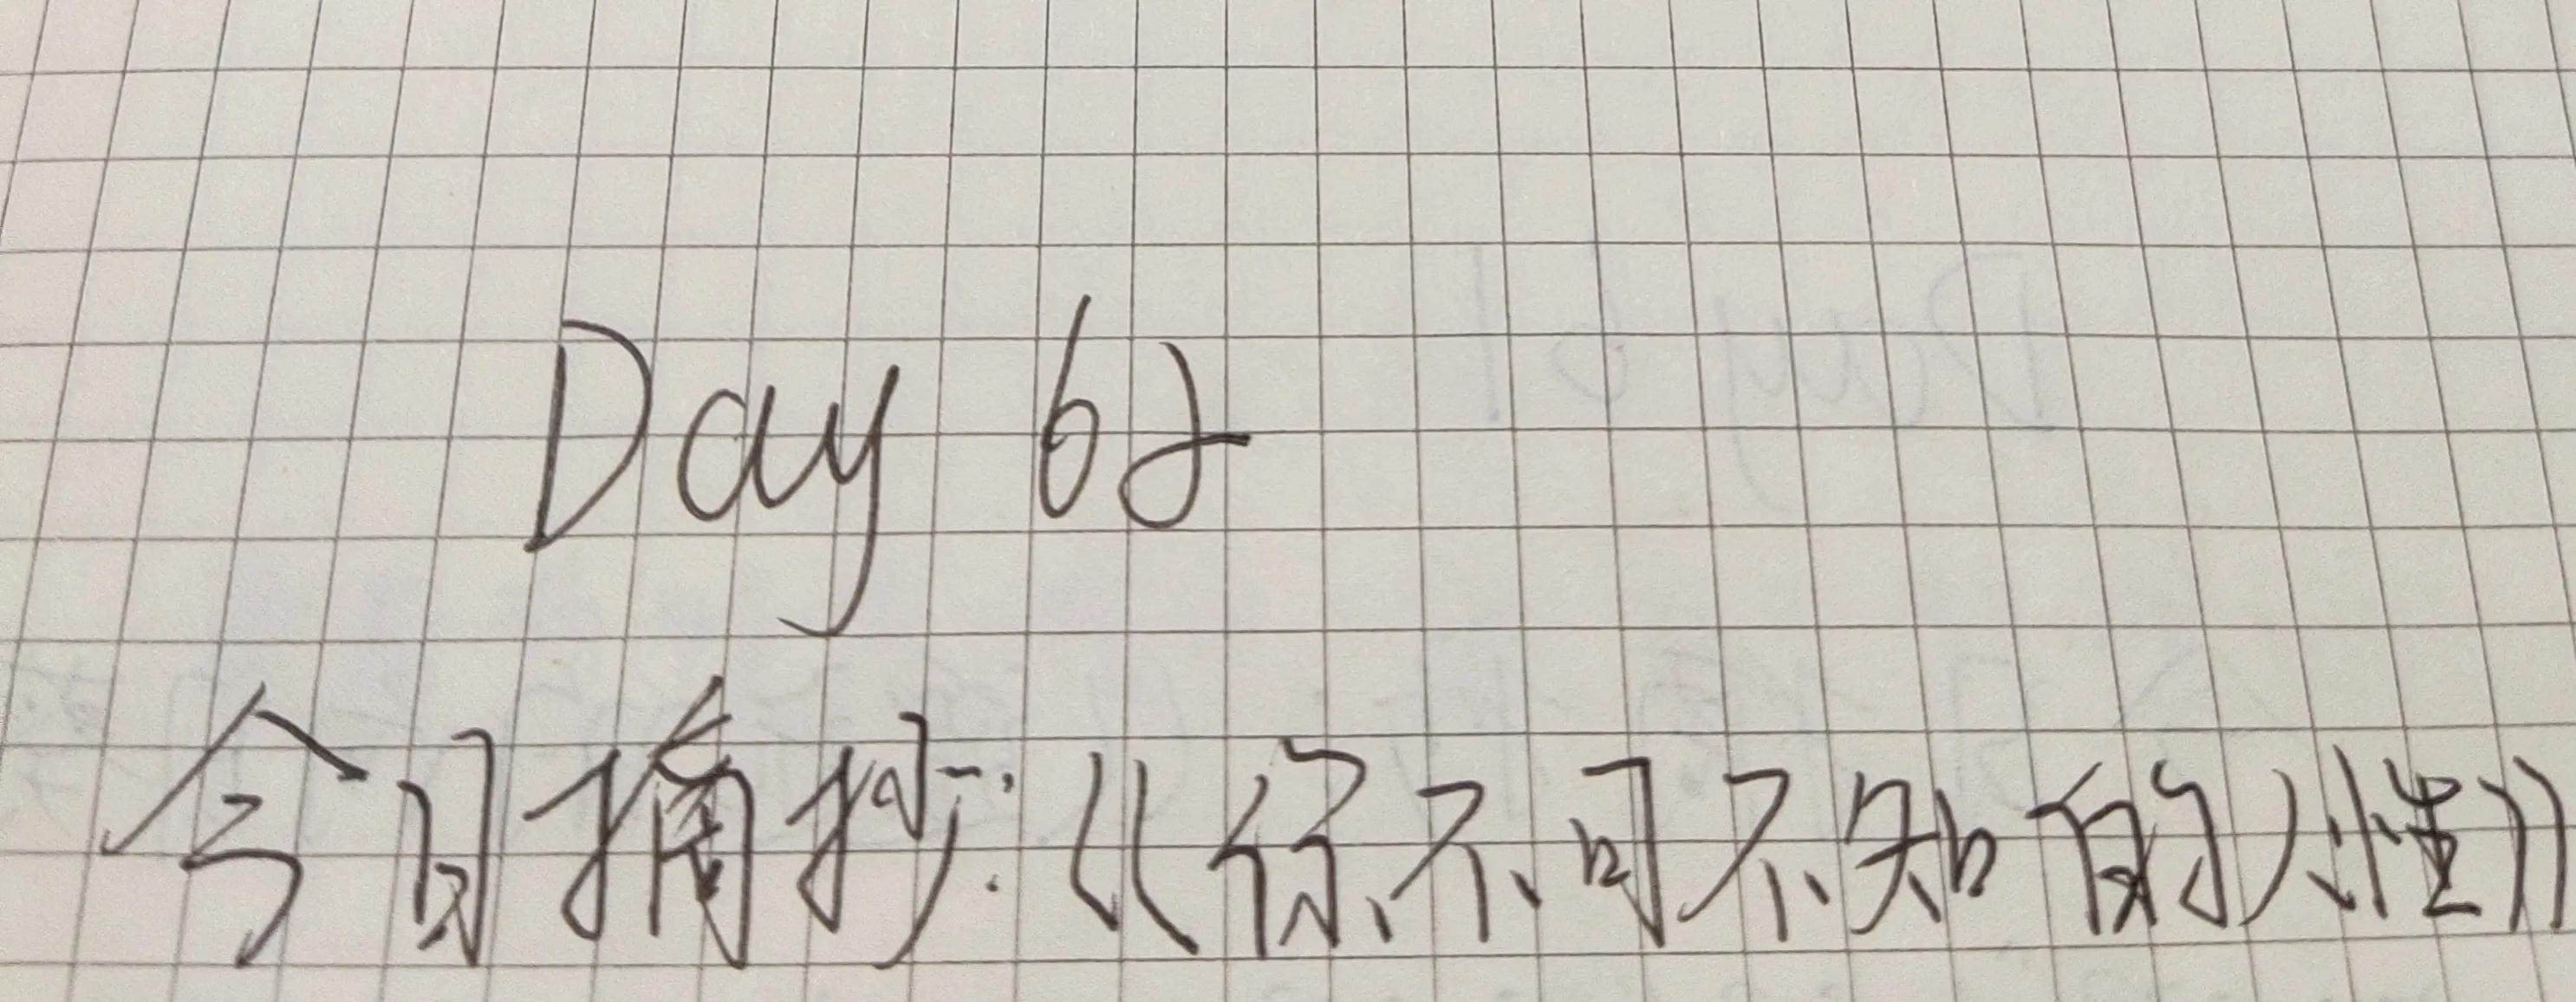 Day 62
今日摘抄:《你不可不知的人性》